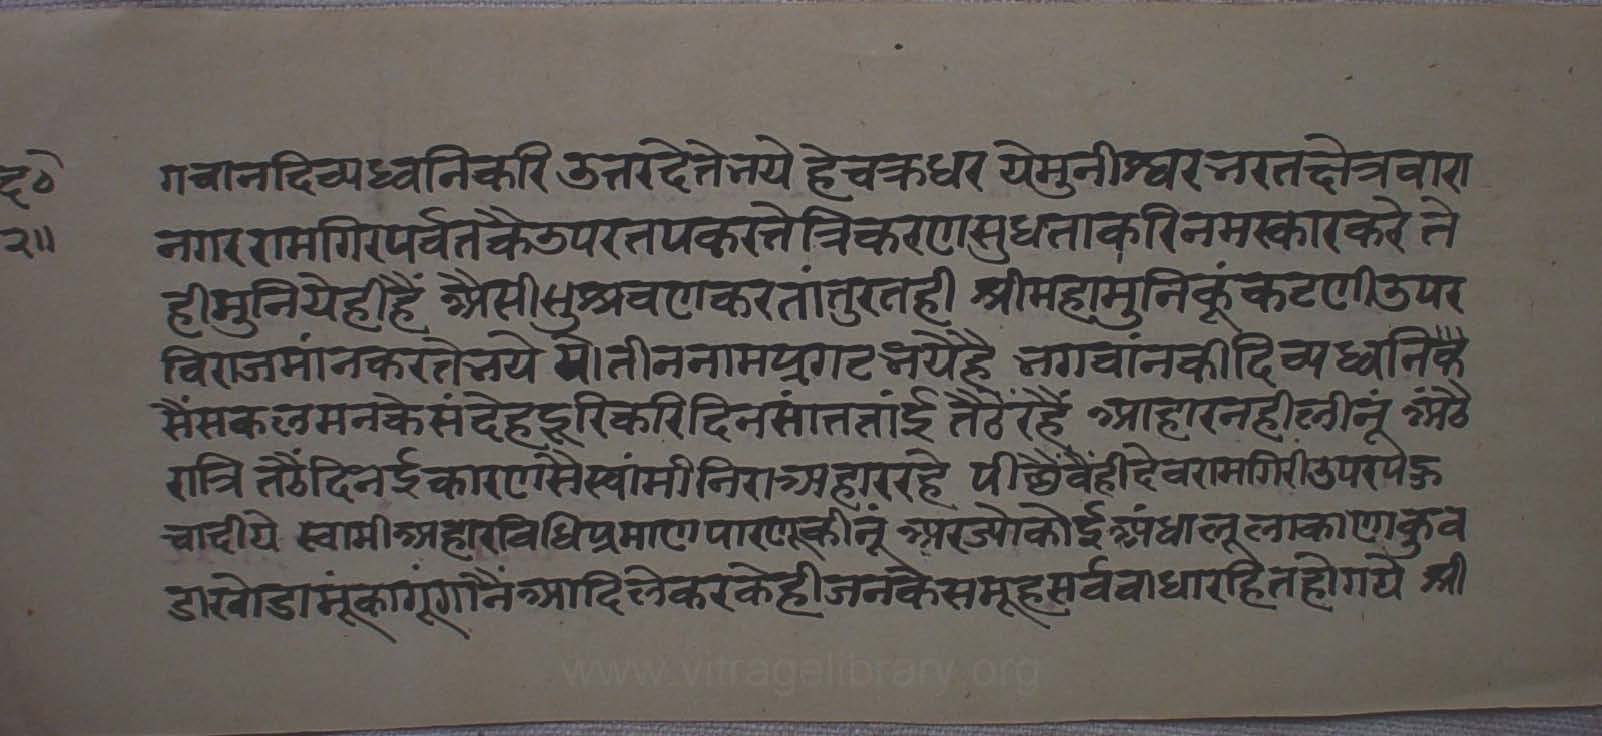 गवान दिव्यध्वनि करि उत्तर देते भये हे चक्रधर ये मुनीश्वर भरत क्षेत्र वारा
नगर रामगिर पर्वत कै उपर तप करते त्रिकरण सुधता करि नमस्कार करे ते
ही मुनि येही हैं अैसी सुश्रवण करतां तुरत ही श्री महामुनि कूं कटणी उपर
विराजमांन करते भये तीन नाम प्रगट भये है भगवांन की दिव्यध्वनि कै
सैं सकल मन के संदेह दूरि करि दिन सांत तांई तैठें रहैं आहार नही लीनूं अंठै
रात्रि तैठैं दिन ई कारण सै स्वांमी निराअहार रहे पीछैं वैंही देव रामगिरी उपर
स्वामी अहार विधि प्रमाण पारण कीनूं अर ज्यो कोई अंधा लूला काणा कुव
डा खोडा मूंका गूंगा नैं आदि लेकर के ही जन कै समूह सर्व वाधा रहित हो गये श्री
द०
२॥
www.vitragelibrary.org